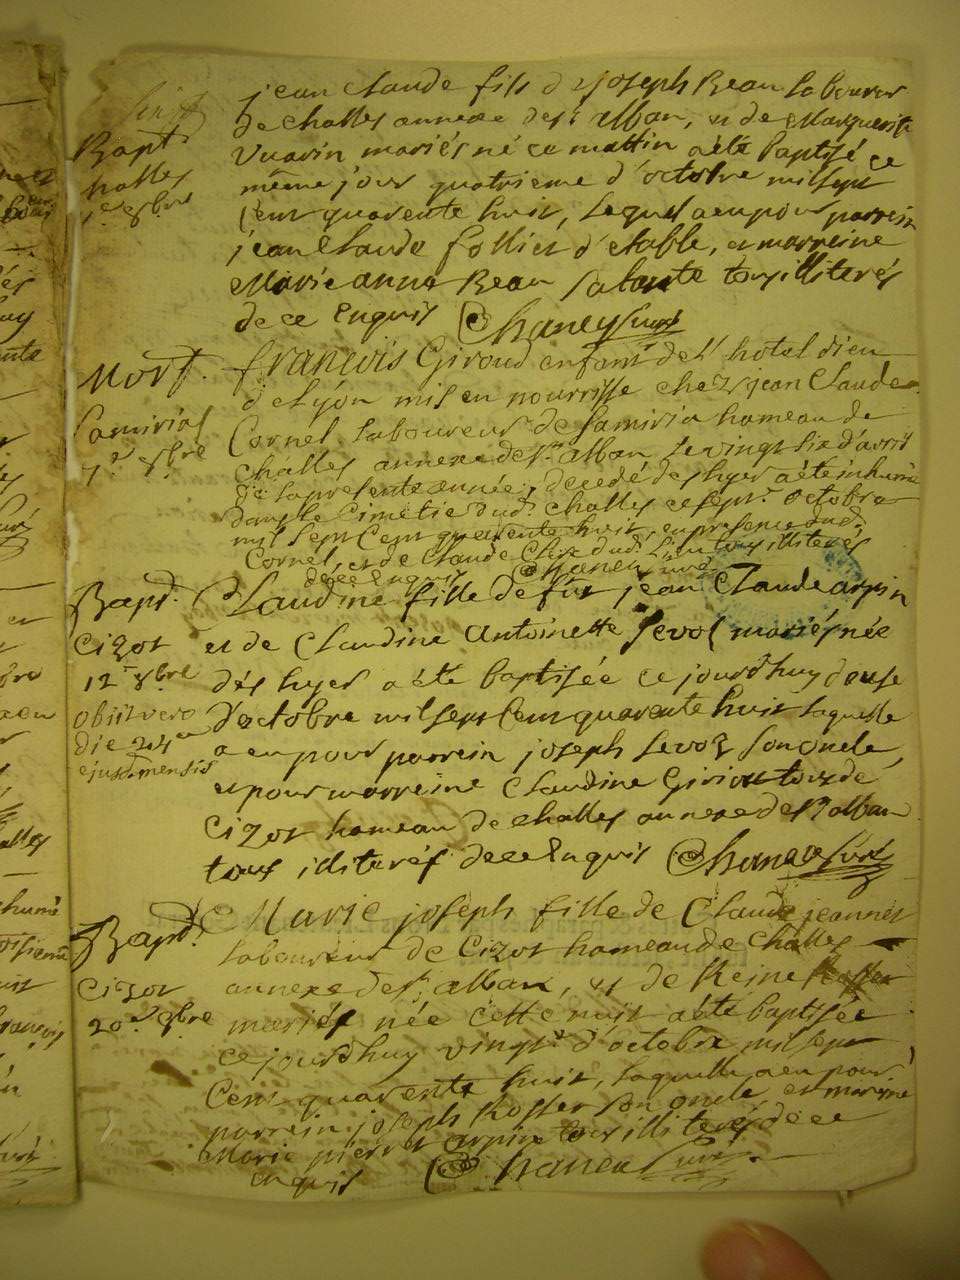 jean Claude fils de joseph Beau laboureur
Bapt.
de challes annexe de st alban, et de Marguerite
challes
Vuarin mariés né ce mattin a été baptisé ce
même jour quatrieme d'octobre mil sept
cent quarente huit, lequel a eu pour parrein
jean Claude follier d'etable, et marreine
Marie anne Beau sa tante tous illiterés
de ce Enquis Chaney Curé
Mort.
françois Giroud enfant de l'hotel dieu
de Lyon mis en nourrisse chez jean Claude
Samiriat
Cornel laboureur de Samiria hameau de
7e 8bre
challes annexe de st alban le vingt six d'avril
de la presente année, decedé des hyer a été inhumé
dans le Cimetier dud. challes ce sept. octobre
mil sept Cent quarente huit, en presence dud.
Cornel, et de Claude dud. Lieu tous illiterés
de ce Enquis Chaney Curé
Bapt.
Claudine fille de fut jean Claude arpin
Cizot
et de Claudine Antoinette Levoz mariés née
12e 8bre
dés hyer a été baptisée ce jourd'huy douse
obiit vero
d'octobre mil sept Cent quarente huit laquelle
die 24a
a eu pour parrein joseph Levoz son oncle,
ejusd. mensis
et pour marreine Claudine Girion tous de
Cizot hameau de challes annexe de st alban
tous illiterés de ce Enquis Chaney Curé
Bapt.
Marie joseph fille de Claude jeannet
laboureur de Cizot hameau de challes
Cizot
annexe de st. alban, et de Reine Rosset
20e 8bre
mariés née cette nuit a été baptisée
ce jourd'huy vingt d'octobre mil sept
Cent quarente huit, laquelle a eu pour
parrein joseph Rosset son oncle, et mareine
Marie pierret arpin tous illiterés de ce
enquis Chaney Curé